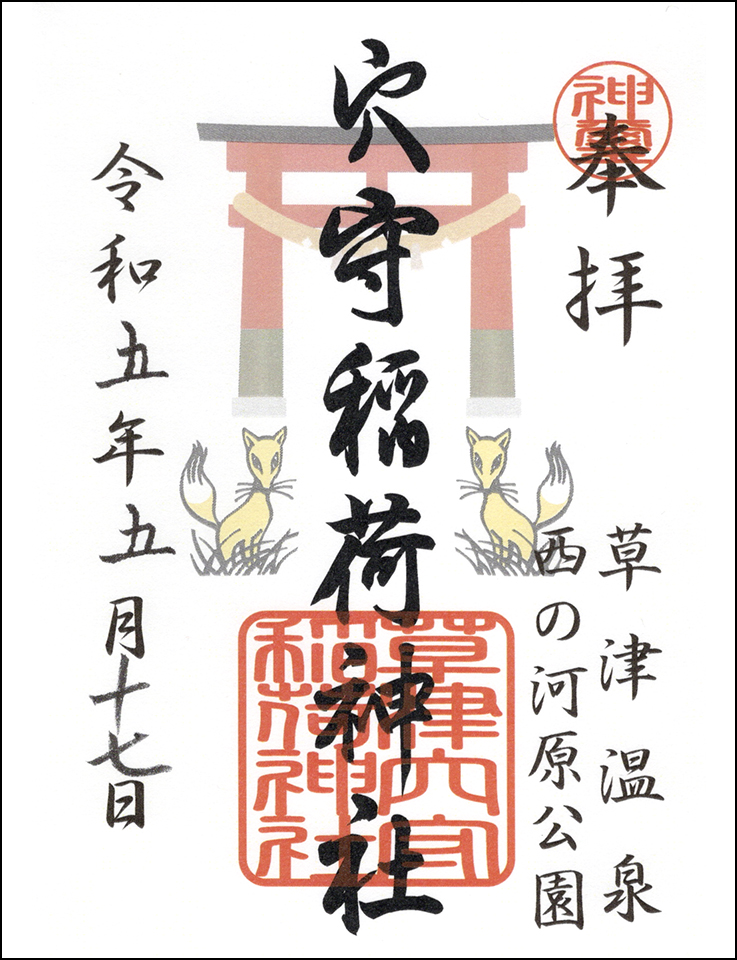 神璽
奉拝
草津温泉
西の河原公園
穴守稲荷神社
草津穴守
稲荷神社
令和五年五月十七日